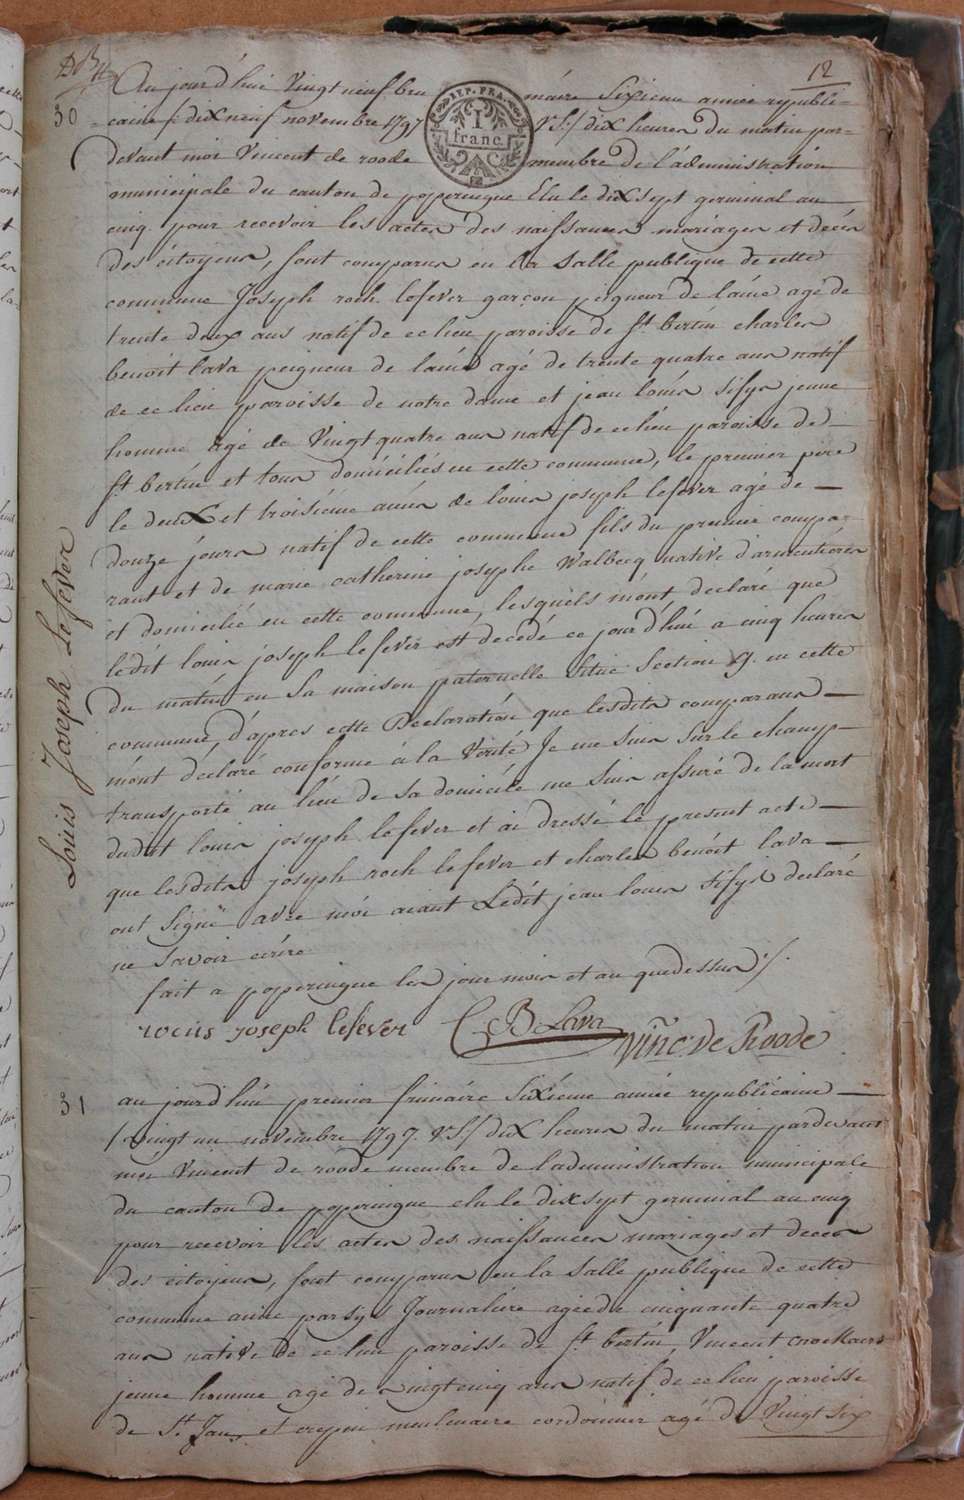 12
30
Aujourd'hui Vingt neuf bru maire Sixieme année republi-
REP. FRA.
1
franc
caine /: dix neuf novembre 1797 V S:/ dix heures du matin par-
devant moi Vincent de roode membre de l'administration
municipale du canton de poperingue Elu le dix sept germinal an
cinq pour recevoir les actes des naissances mariages et décès
des citoyens, sont comparus en la Salle publique de cette
commune Joseph roch lefever garçon peigneur de laine agé de
trente deux ans natif de ce lieu paroisse de St. bertin charles
benoit lava peigneur de laine agé de trente quatre ans natif
de ce lieu paroisse de notre dame et jean louis sifys jeune
homme agé de Vingt quatre ans natif de ce lieu paroisse de
St. bertin et tous domiciliés en cette commune, le premier père
le deux et troisième amis de louis joseph lefever agé de
douze jours natif de cette commune fils du premier compa-
rant et de marie catherine josephe Walbecq native d'armentières
et domiciliée en cette commune, lesquels m'ont declaré que
ledit louis joseph lefever est décédé ce jourd'hui a cinq heures
du matin en sa maison paternelle située Section g. en cette
commune, d'apres cette Declaration que lesdits comparans
m'ont declaré conforme à la Verité Je me suis sur le champ
transporté au lieu de sa domicile me suis assuré de la mort
dudit louis joseph lefever et ai dressé le present acte
que lesdits joseph roch lefever et charles benoit lava
ont Signé avec moi aiant Ledit jean louis sifys declaré
ne savoir écrire
fait a poperingue les jour mois et an que dessus /.
Louis Joseph Lefever
joseph lefever C B Lava Vinc. De Roode
31
au jourd'hui premier frimaire sixième année republicaine
/ vingt un novembre 1797. V S:/ dix heures du matin pardevant
moi Vincent de roode membre de l'administration municipale
du canton de poperingue elu le dix sept germinal an cinq
pour recevoir les actes des naissances mariages et deces
des citoyens, sont comparus en la salle publique de cette
commune anne parsys Journalière agée de cinquante quatre
ans native de ce lieu paroisse de St. bertin, Vincent cnockaert
jeune homme agé de vingt cinq ans natif de ce lieu paroisse
de St. Jans et crepin meulenaere cordonnier agé de Vingt six